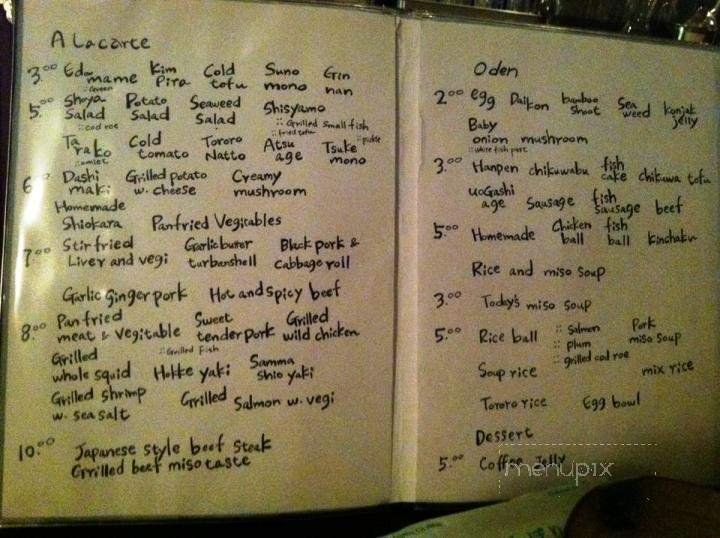 A Lacarte
3.00 Eda mame Kim Pira Cold tofu Suno mono Gin nan
:: Green
5.00 Shoya Salad Potato Salad Seaweed Salad Shisyamo
:: cod roe :: Grilled small fish
Ta rako Cold tomato Tororo Natto Atsu age Tsuke mono
:: fried tofu :: pickle
:: omlet
6.00 Dashi maki Grilled potato w. cheese Creamy mushroom
Homemade
Shiokara Panfried Vegitables
7.00 Stir fried Liver and vegi Garlic buter turbanshell Black pork & cabbage roll
Garlic ginger pork Hot and spicy beef
8.00 Pan fried meat & vegitable Sweet tender pork Grilled wild chicken
:: Grilled fish
Grilled whole squid Hokke yaki Samma shio yaki
Grilled shrimp w. sea salt Grilled Salmon w. vegi
10.00 Japanese style beef steak
Grrilled beef miso taste
Oden
2.00 egg Daikon bamboo shoot Sea weed konjak jelly
Baby
onion mushroom
:: white fish part
3.00 Hanpen chikuwabu fish cake chikuwa tofu
uoGashi age Sausage fish sausage beef
5.00 Homemade Chicken ball fish ball kinchaku
Rice and miso soup
3.00 Today's miso soup
5.00 Rice ball :: Salmon Pork miso soup
:: plum
:: grilled cod roe
Soup rice mix rice
Tororo rice Egg bowl
Dessert
5.00 Coffee Jelly
menupix